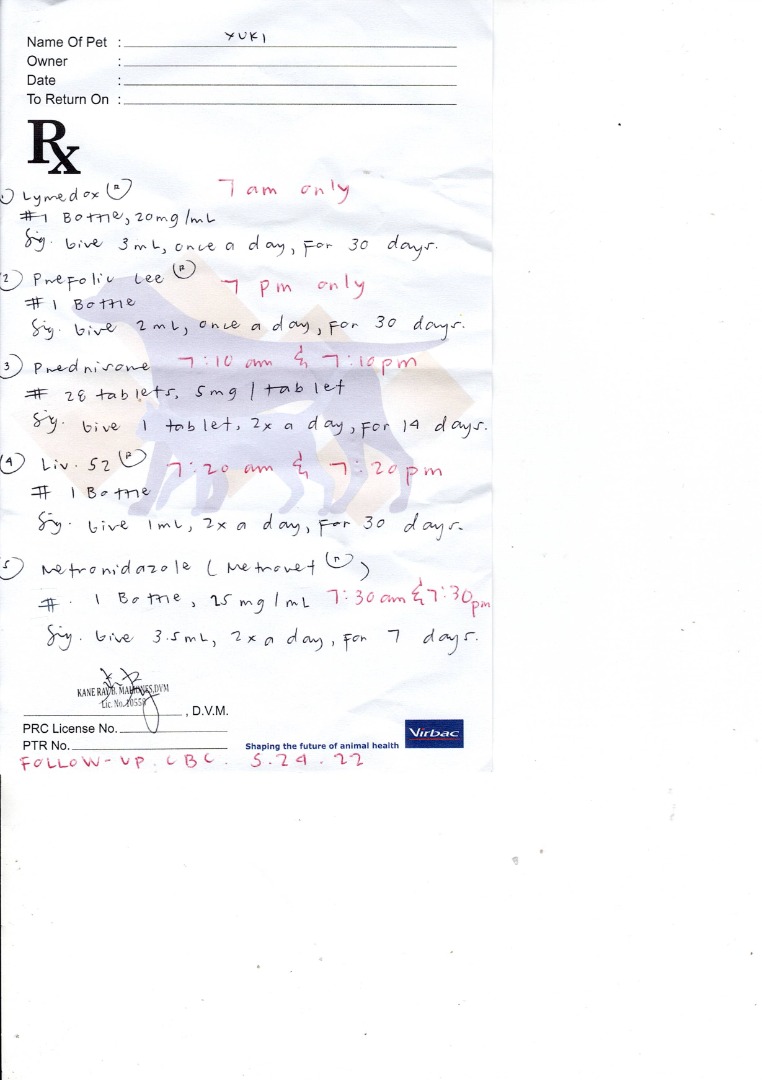 Name Of Pet : YUKI
Owner :
Date :
To Return On :
Rx
1 Lymedox ® 7 am only
#1 Bottle, 20mg/mL
Sig. Give 3mL, once a day, for 30 days.
2 Prefolic Cee ® 7 pm only
# 1 Bottle
Sig. Give 2mL, once a day, for 30 days.
3 Prednisone 7:10 am & 7:10pm
# 28 tablets, 5mg/tablet
Sig. Give 1 tablet, 2x a day, for 14 days.
4 Liv. 52 ® 7:20 am & 7:20pm
# 1 Bottle
Sig. Give 1mL, 2x a day, for 30 days.
5 Metronidazole (Metrovet ®)
#. 1 Bottle, 25 mg/mL 7:30am & 7:30pm
Sig. Give 3.5mL, 2x a day, for 7 days.
KANE RAY B. ,DVM
Lic. No.
, D.V.M.
PRC License No.
PTR No.
Shaping the future of animal health Virbac
FOLLOW-UP. CBC. 5.24.22